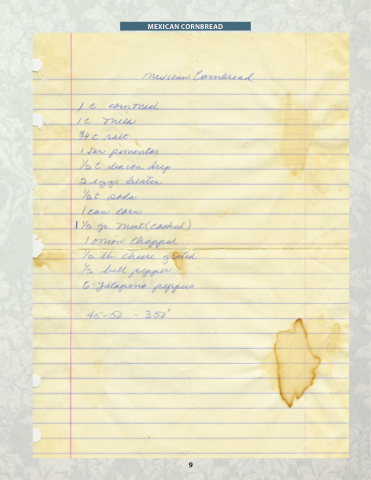 MEXICAN CORNBREAD
Mexican Cornbread
1 c cornmeal
1 c milk
3/4 c salt
1 Jar pimentos
1/2 c bacon drip
2 eggs beaten
1/2 t soda
1 can corn
1 1/2 gr. meat (cooked)
1 onion chopped
1/2 lb. cheese grated
1/2 bell pepper
6 Jalapeno peppers
45-50 - 350°
9